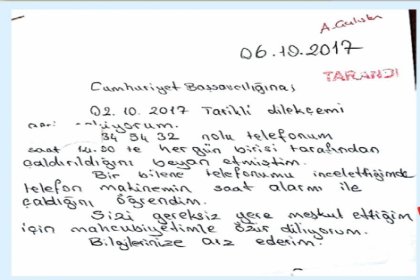 06.10.2017
TARANDI
Cumhuriyet Başsavcılığına,
02.10.2017 Tarihli dilekçemi
34 54 32 nolu telefonum
saat 14.00 te hergün birisi tarafından
çaldırıldığını beyan etmiştim.
Bir bilene telefonumu incelettiğimde
telefon makinemin saat alarmı ile
çaldığını öğrendim.
Sizi gereksiz yere meşkul ettiğim
için mahcubiyetimle özür diliyorum.
Bilgilerinize arz ederim.